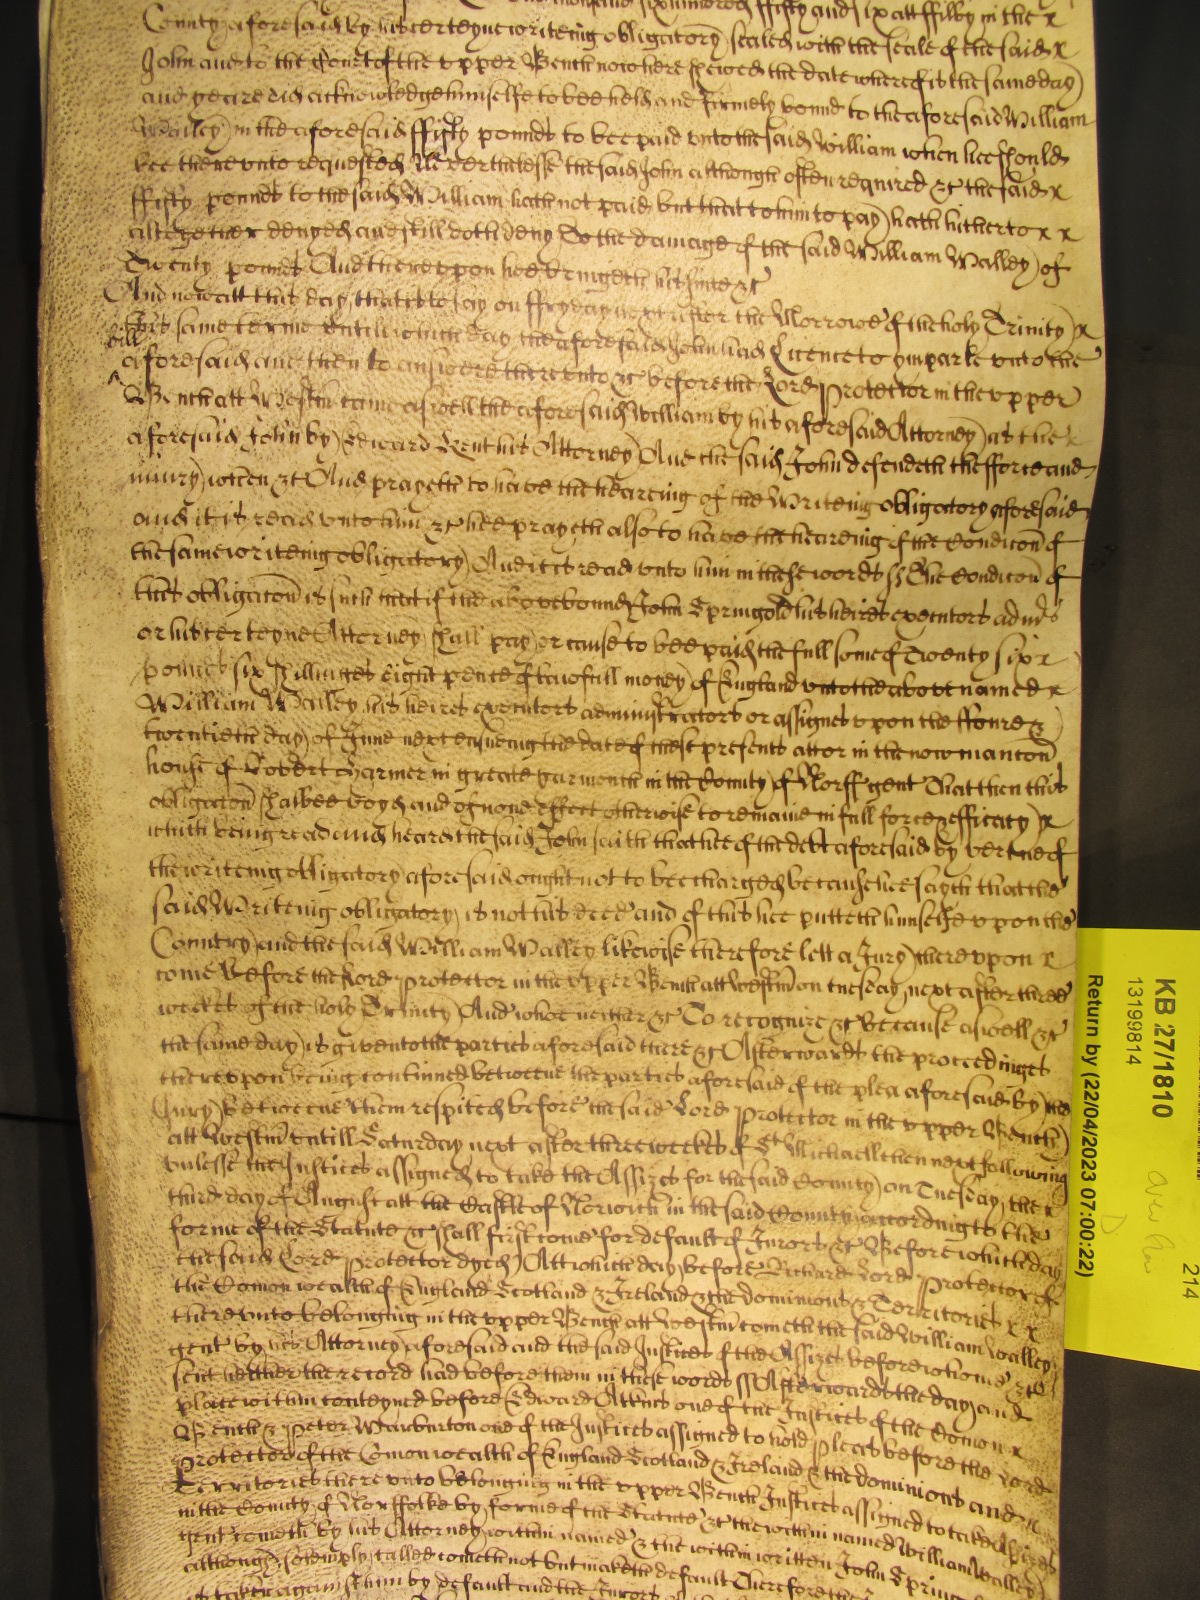 one thousand six hundred ffifty and six att ffilby in the x
County aforesaid by his certeyne writeing obligatory sealed with the seale of the said x
John and to the Court of the upper Bench now here shewed the date whereof is the same day
and yeare did acknowledge himselfe to bee held and firmely bound to the aforesaid William
Walley in the aforesaid ffifty pounds to bee paid unto the said William when hee should
bee thereunto requested Neverthelesse the said John although often required &c the said x
ffifty pounds to the said William hath not paid but that to him to pay hath hitherto x x
altogether denyed and still doth deny To the damage of the said William Walley of
Twenty pounds And thereupon hee bringeth his suite &c
And now att this day that is to say on ffryday next after the Morrowe of the holy Trinity x
this same terme untill which day the aforesaid John had licence to imparle unto the
bill
aforesaid and then to answere thereunto &c before the Lord Protector in the upper
Bench att Westm came aswell the aforesaid William by his aforesaid Attorney as the x
aforesaid John by Edward Kent his Attorney And the said John defendeth the fforce and
iniury when &c And prayeth to have the heareing of the Writeing obligatory aforesaid
and it is read unto him &c hee prayeth also to have the heareing of the Condicon of
the same writeing obligatory And it is read unto him in these words ss The Condicon of
this obligacon is such that if the above bound John Springold his heires executors admrs
or his certeyne Attorney shall pay or cause to bee paid the full some of Twenty six x
pounds six shillinges eight pence of lawfull money of England unto the above named x
William Walley his heires executors administrators or assignes upon the ffoure &
twentieth day of June next ensueing the date of these presents att or in the now mancon
house of Robert Harmer in greate yarmouth in the County of Norff gent That then this
obligacon shalbee voyd and of none effect otherwise to remaine in full force & efficacy x
which being read and heard the said John saith that hee of the debt aforesaid by vertue of
the writeing obligatory aforesaid ought not to bee charged because hee sayth that the
said Writeing obligatory is not his deed and of this hee putteth himselfe upon the
Country and the said William Walley likewise therefore lett a Jury thereupon x
come before the Lord Protector in the upper Bench att Westm on tuesday next after three
weekes of the holy Trinity And who neither &c To recognize &c because aswell &c
the same day is given to the parties aforesaid there &c Afterwards the proceedinges
thereupon being continued betweene the parties aforesaid of the plea aforesaid by the
Jury betweene them respited before the said Lord Protector in the upper Bench
att Westm untill Saturday next after three weekes of St Michaell then next following
unlesse the Justices assigned to take the Assizes for the said County on Tuesday the x
third day of August att the Castle of Norwich in the said County according to the
forme of the Statute &c shall first come for default of Jurors &c Before which day
the said Lord Protector dyed Att which day before Richard Lord Protector of
the Comon wealth of England Scotland & Ireland & the dominions & Territories x x
thereunto belonging in the upper Bench att Westm cometh the said William Walley
gent by his Attorney aforesaid and the said Justices of the Assizes before whome &c
sent hether the record had before them in these words ss Afterwards the day and
place within conteyned before Edward Atkins one of the Justices of the Comon x
Bench & Peter Warburton one of the Justices assigned to hold pleas before the Lord
Protector of the Comon wealth of England Scotland & Ireland & the dominions and x
Territories thereunto belonging in the upper Bench Justices assigned to take Assizes
in the County of Norffolke by forme of the Statute &c the within named William Walley
gent cometh by his Attorney within named & the within written John Springold
although solemply called cometh not but maketh default Therefore the
taken against him by default and the Jurors
KB 27/1810
13199814
Return by (22/04/2023 07:00:22)
214